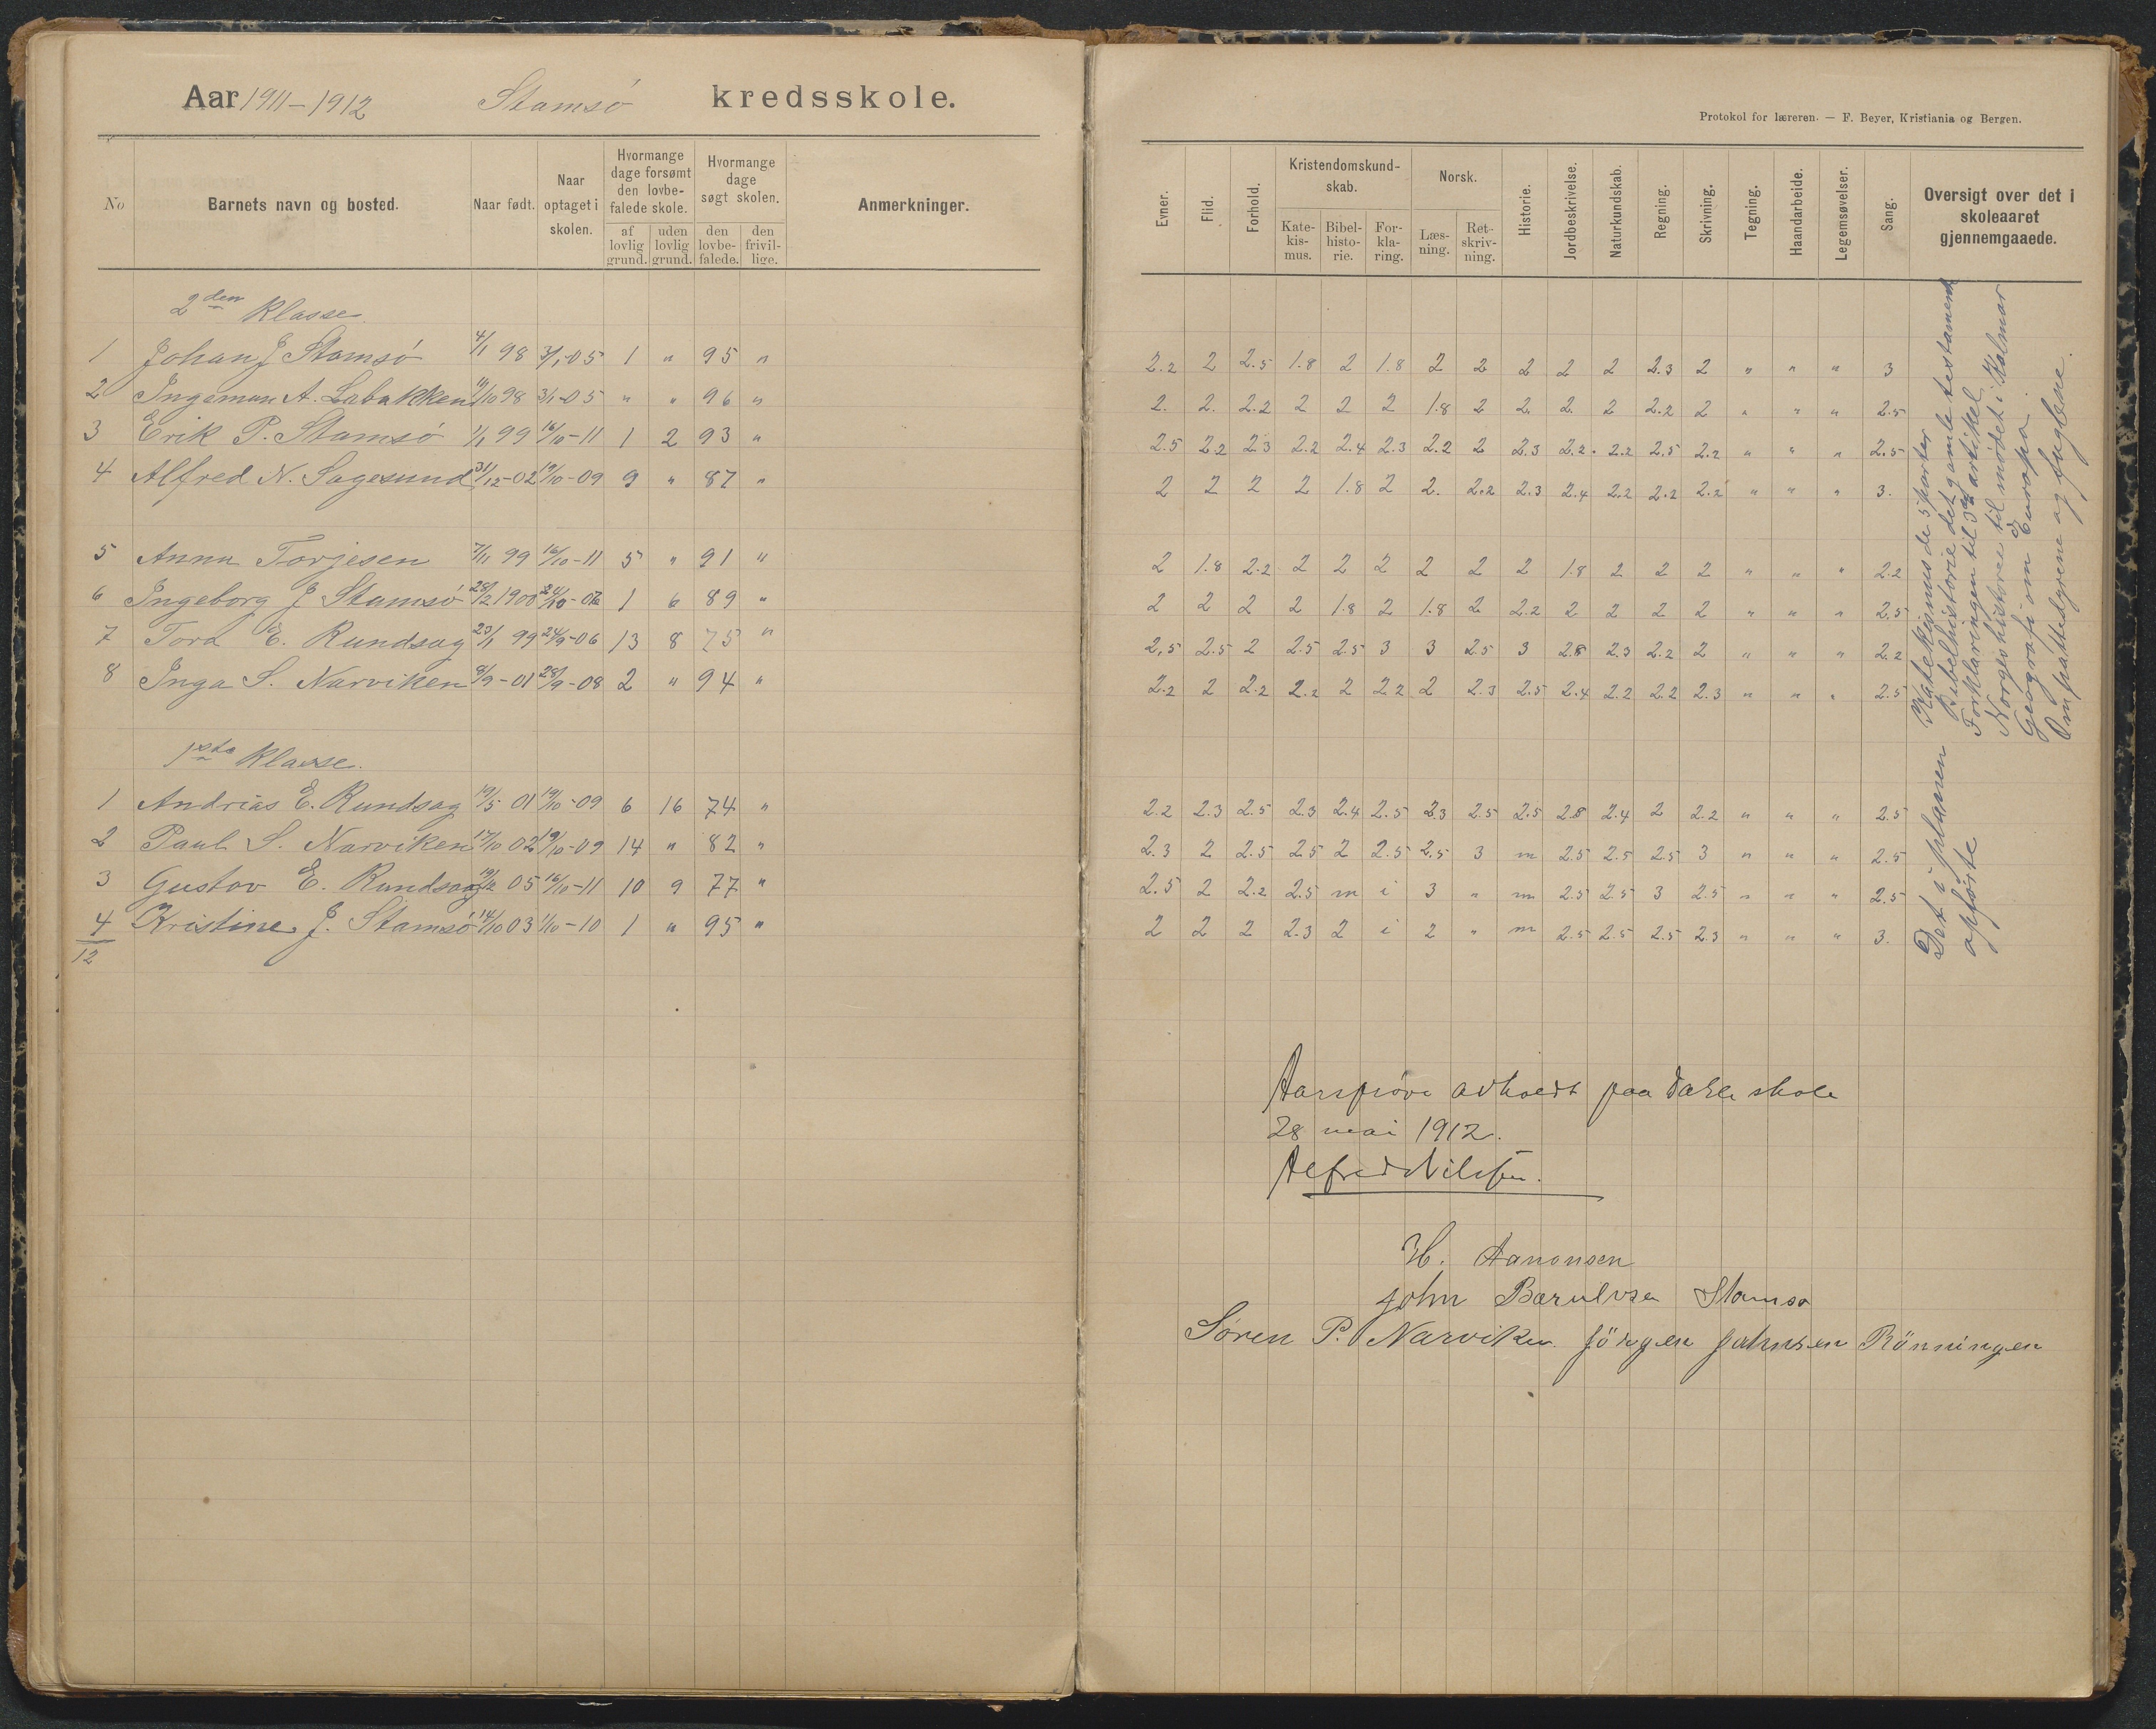 Aar 1911-1912 Stamsø kredsskole.
No Barnets navn og bosted. Naar født. Naar optaget i skolen. Hvormange dage forsømt den lovbefalede skole. af lovlig grund. uden lovlig grund. Hvormange dage søgt skolen. den lovbefalede. den frivillige. Anmerkninger.
2den Klasse
1 Johan J Stamsø 4/1 98 3/1-05 1 " 95 "
2 Ingeman A. Labakken 11/10 98 3/1-05 " " 96 "
3 Erik P. Stamsø 1/1 99 16/10-11 1 2 93 "
4 Alfred N. Sagesund 31/12-02 19/10-09 9 " 87 "
5 Anna Torjesen 7/11 99 16/10-11 5 " 91 "
6 Ingeborg J Stamsø 28/2 1900 24/10-06 1 6 89 "
7 Tora E. Rundsag 23/1 99 24/9-06 13 8 75 "
8 Inga S. Narviken 8/9-01 28/9-08 2 " 94 "
1ste Klasse.
1 Andrias E. Rundsag 19/5 01 19/10-09 6 16 74 "
2 Paul S. Narviken 17/10 02 19/10-09 14 " 82 "
3 Gustav E. Rundsag 19/12 05 16/10-11 10 9 77 "
4 Kristine J. Stamsø 14/10 03 1/10-10 1 " 95 "
12
Protokol for læreren. — F. Beyer, Kristiania og Bergen.
Evner. Flid. Forhold. Kristendomskundskab. Katekismus. Bibelhistorie. Forklaring. Norsk. Læsning. Retskrivning. Historie. Jordbeskrivelse. Naturkundskab. Regning. Skrivning. Tegning. Haandarbeide. Legemsøvelser. Sang. Oversigt over det i skoleaaret gjennemgaaede.
2.2 2 2.5 1.8 2 1.8 2 2 2 2 2 2.3 2 " " " 3
2. 2. 2.2 2 2 2 1.8 2 2. 2. 2 2.2 2 " " " 2.5
2.5 2.2 2.3 2.2 2.4 2.3 2.2 2 2.3 2.2. 2.2 2.5 2.2 " " " 2.5
2 2 2 2 1.8 2 2. 2.2 2.3 2.4 2.2 2.2 2.2 " " " 3.
2 1.8 2.2 2 2 2 2 2 2 1.8 2 2 2 " " " 2.2
2 2 2 2 1.8 2 1.8 2 2.2 2 2 2 2 " " " 2.5
2,5 2.5 2 2.5 2.5 3 3 2.5 3 2.8 2.3 2.2 2 " " " 2.2
2.2 2 2.2 2.2 2 2.2 2 2.3 2.5 2.4 2.2 2.2 2.3 " " " 2.5
2.2 2.3 2.5 2.3 2.4 2.5 2.3 2.5 2.5 2.8 2.4 2 2.2 " " " 2.5
2.3 2 2.5 2.5 2 2.5 2.5 3 m 2.5 2.5 2.5 3 " " " 2.5
2.5 2 2.2 2.5 m i 3 " m 2.5 2.5 3 2.5 " " " 2.5
2 2 2 2.3 2 i 2 " m 2.5 2.5 2.5 2.3 " " " 3.
Katekismus de 5 parter
Bibelhistorie det gamle testamente
Forklaringen til 3die artikel
Norges historie til mødet i Kalmar
Geografi om Europa.
Om pattedyrene og fuglene.
Det i planen
opførte
Aarsprøve avholdt paa Dahle skole
28 mai 1912.
Alfred Nilssen.
H. Aanonsen
John Bærulvsen Stamsø
Søren P. Narviken Jörgen Johnsen Rönningen